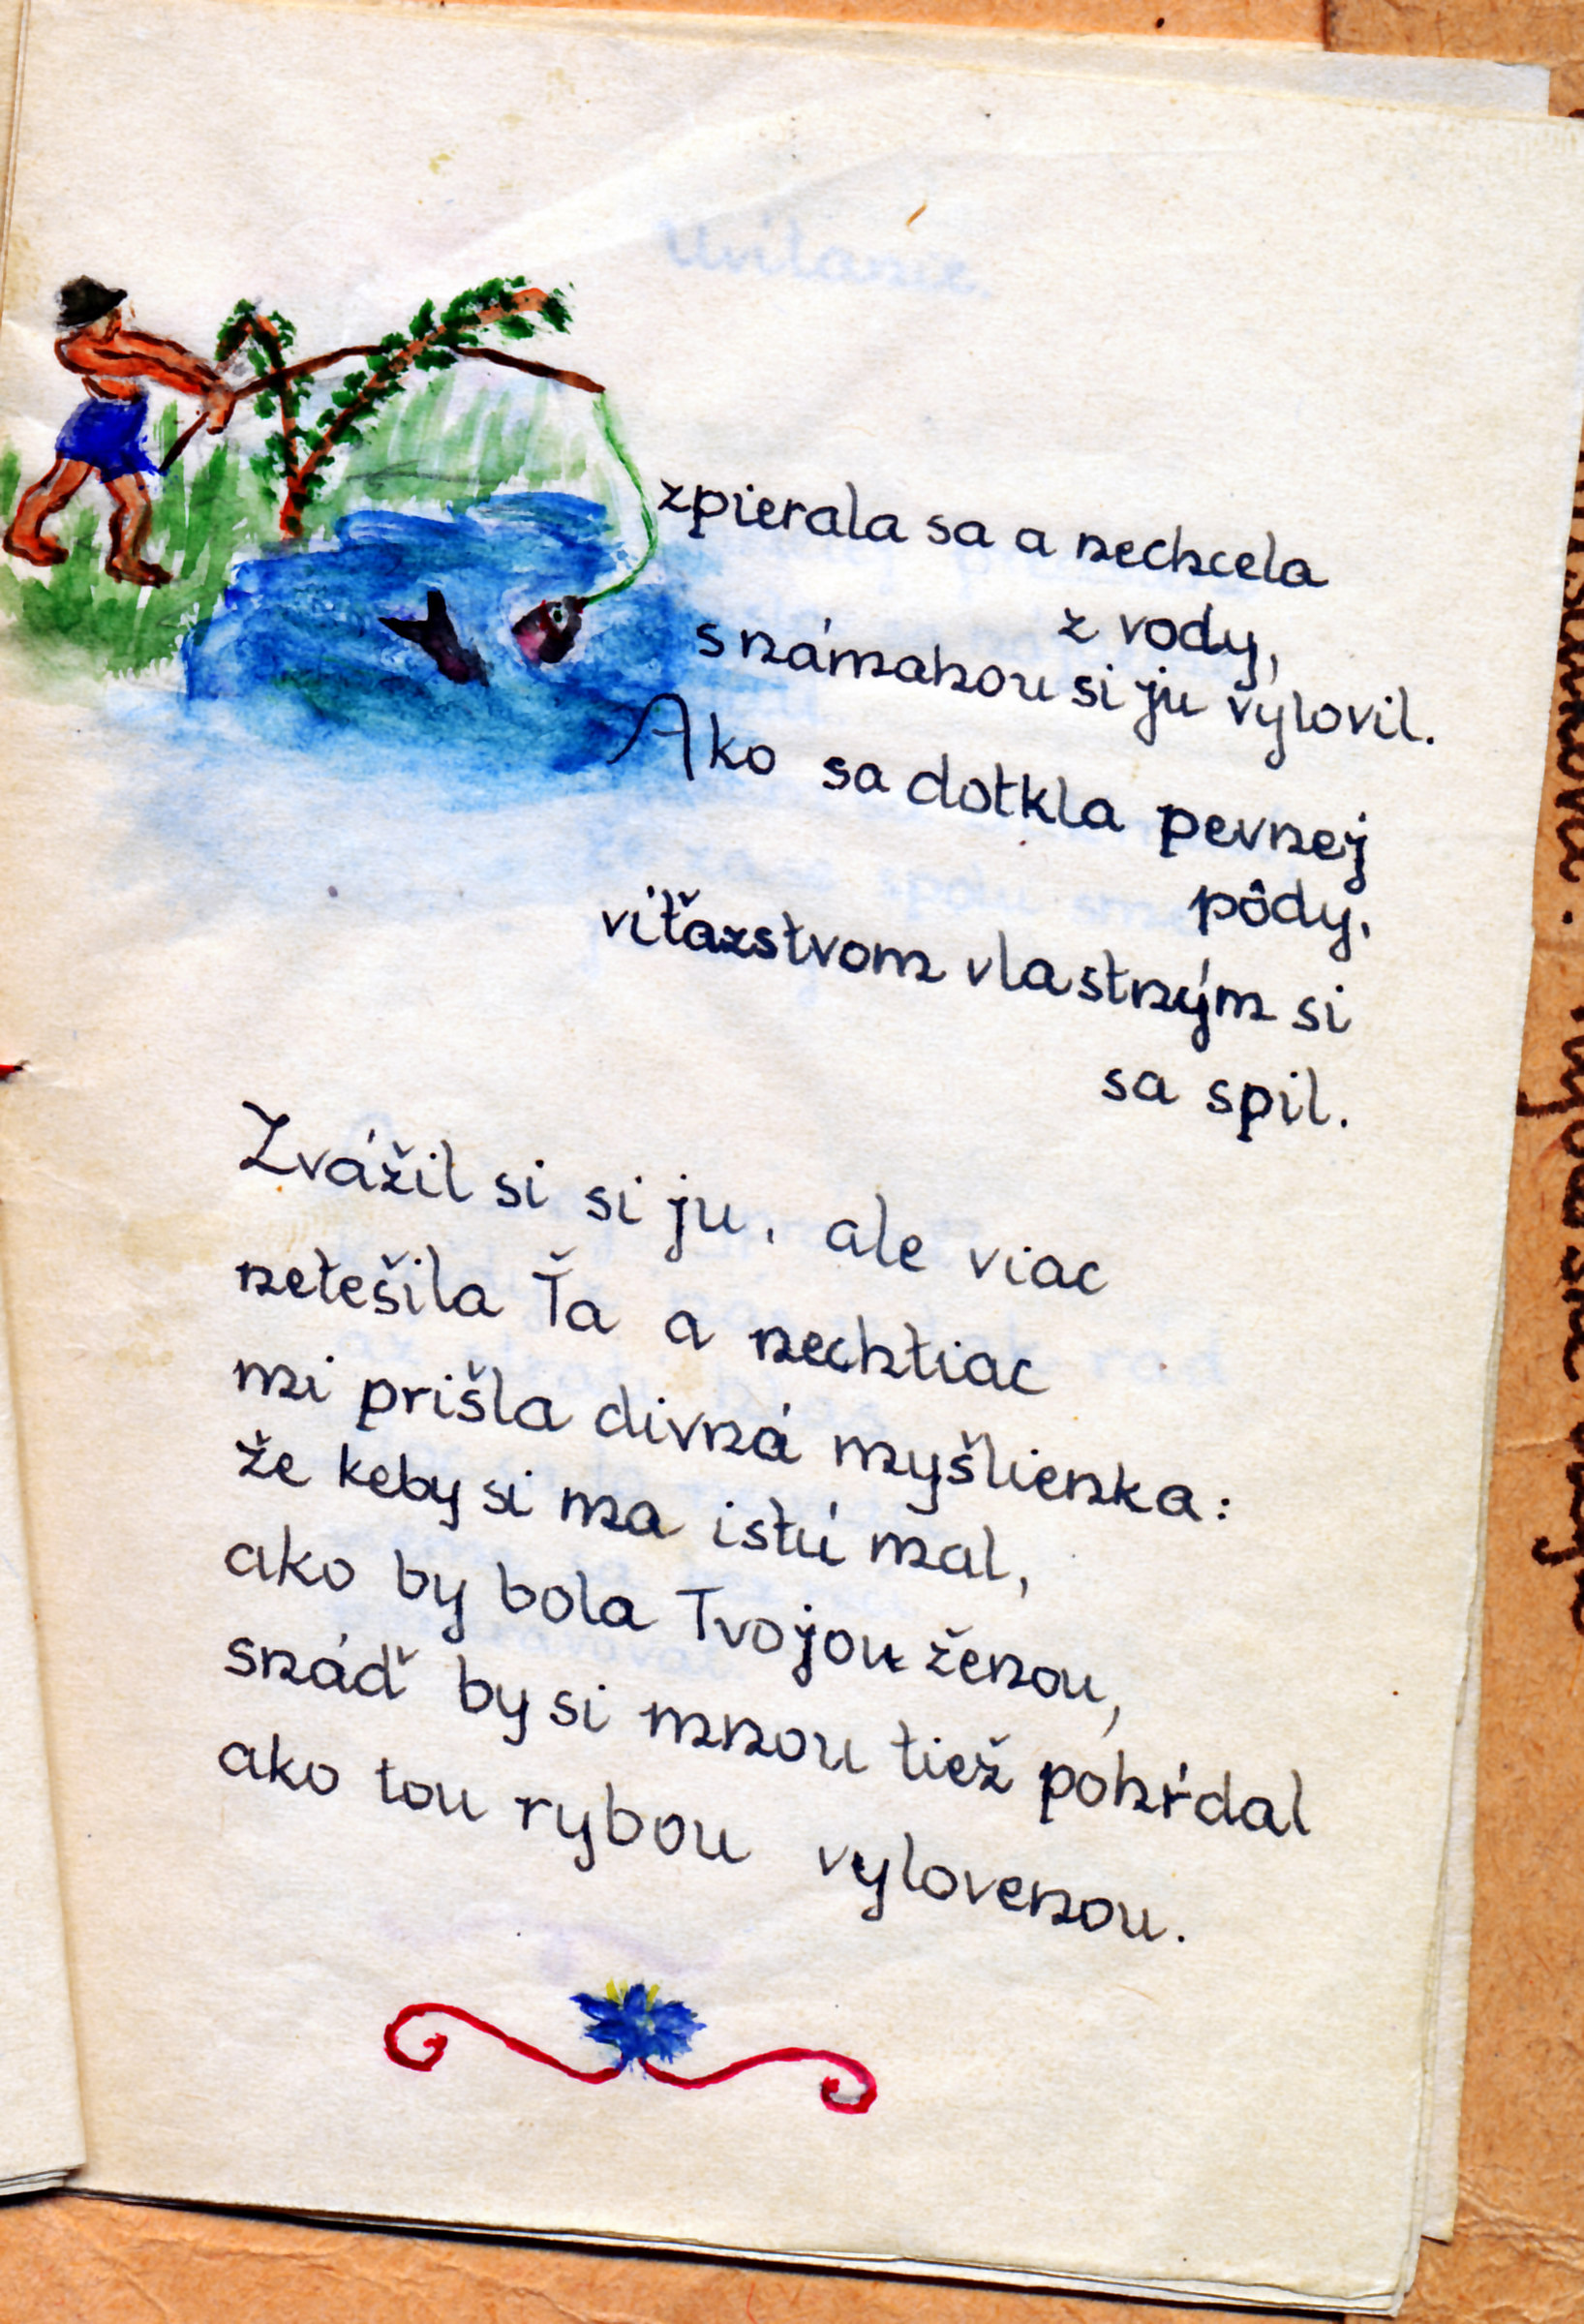 zpierala sa a nechcela
z vody,
s námahou si ju vylovil.
Ako sa dotkla pevnej
pôdy,
víťazstvom vlastným si
sa spil.
Zvážil si si ju, ale viac
netešila Ťa a nechtiac
mi prišla divná myšlienka:
že keby si ma istú mal,
ako by bola Tvojou ženou,
snáď by si mnou tiež pohŕdal
ako tou rybou vylovenou.